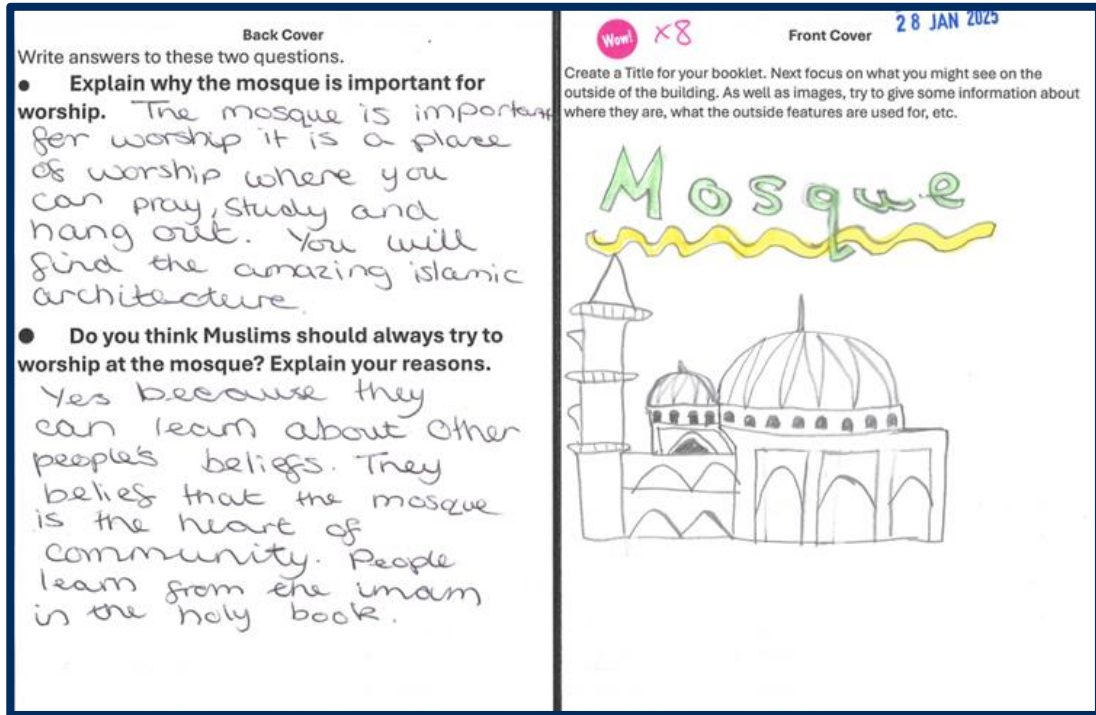 Back Cover
Write answers to these two questions.
● Explain why the mosque is important for
worship. The mosque is important
for worship it is a place
of worship where you
can pray, study and
hang out. You will
find the amazing islamic
architecture.
● Do you think Muslims should always try to
worship at the mosque? Explain your reasons.
Yes because they
can learn about other
people's beliefs. They
belief that the mosque
is the heart of
community. People
learn from the imam
in the holy book.
Wow! x8
Front Cover
28 JAN 2025
Create a Title for your booklet. Next focus on what you might see on the
outside of the building. As well as images, try to give some information about
where they are, what the outside features are used for, etc.
Mosque